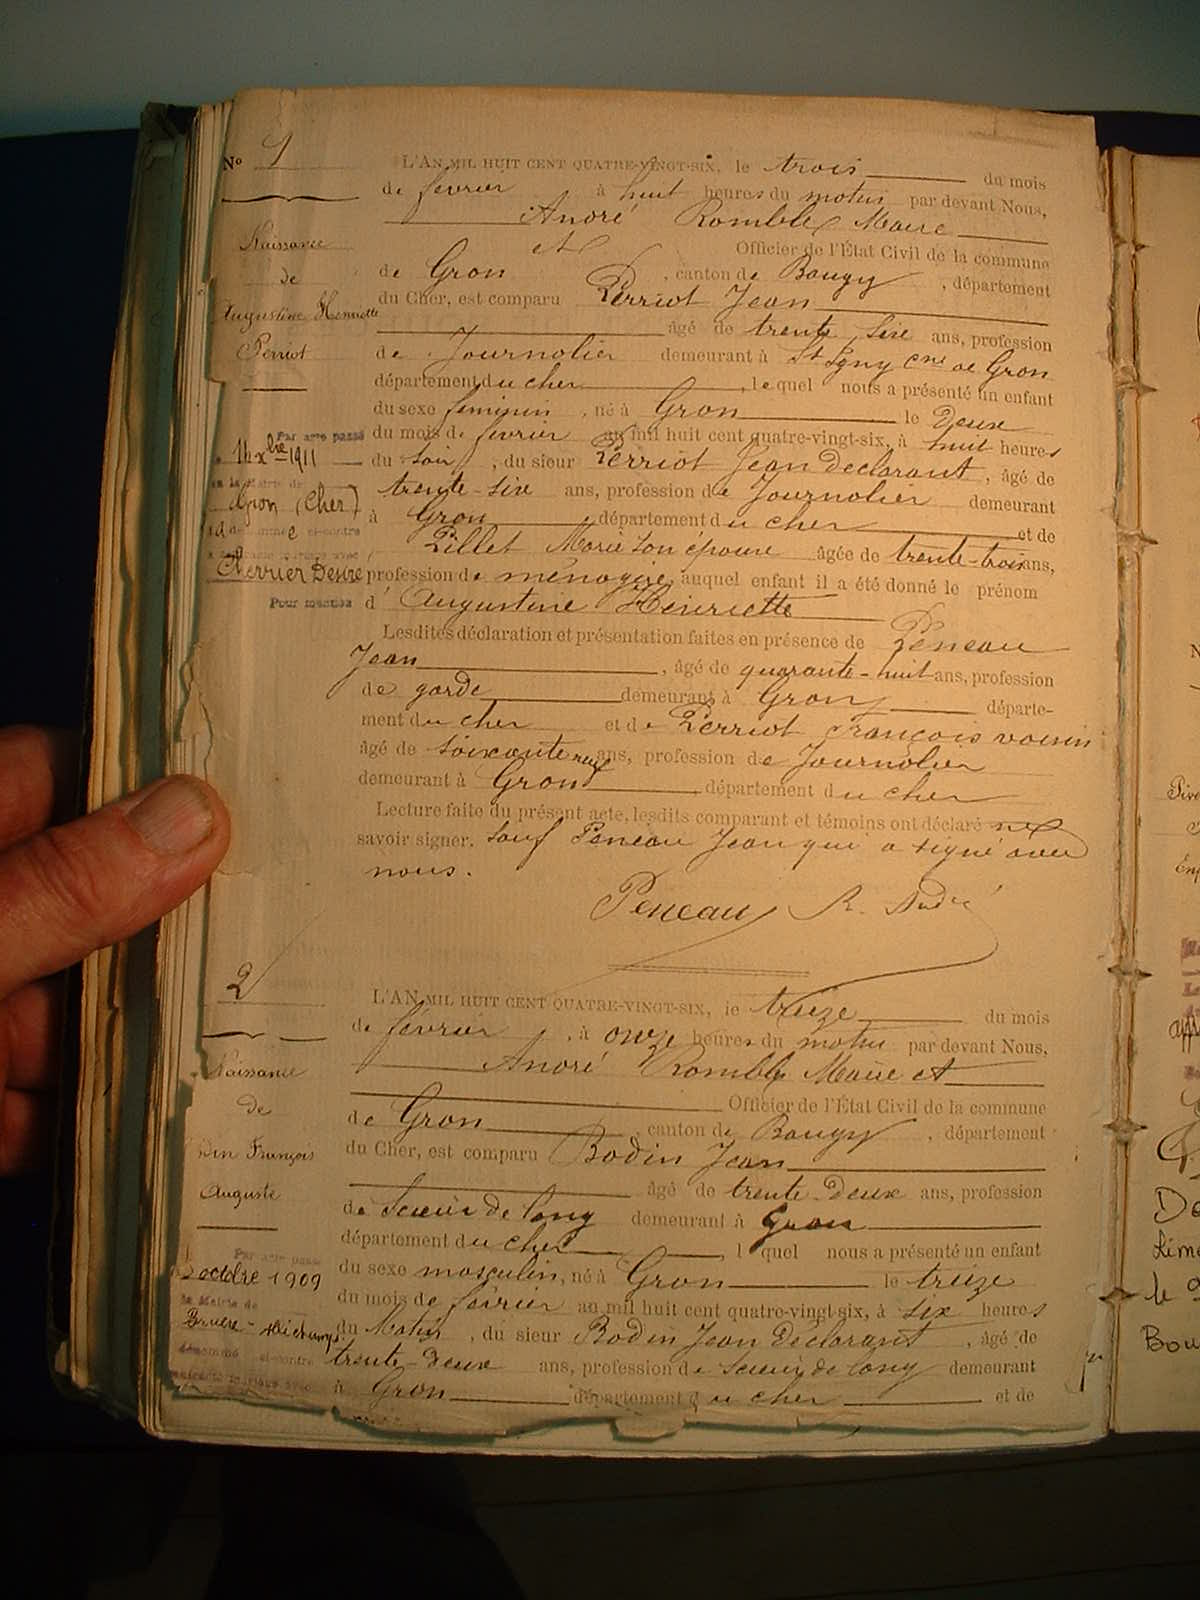 No 1
L'AN MIL HUIT CENT QUATRE-VINGT-SIX, le trois du mois
de février à huit heures du matin par devant Nous,
André Romble Maire
et Officier de l'État Civil de la commune
de Gron, canton de Baugy, département
du Cher, est comparu Perriot Jean
âgé de trente six ans, profession
de Journalier demeurant à St Igny cne de Gron
département du cher, lequel nous a présenté un enfant
du sexe feminin, né à Gron le Deux
du mois de fevrier an mil huit cent quatre-vingt-six, à huit heures
du soir, du sieur Perriot Jean declarant, âgé de
trente-six ans, profession de Journalier demeurant
à Gron département du cher et de
Pillet Marie son épouse âgée de trente-trois ans,
profession de ménagère, auquel enfant il a été donné le prénom
d' Augustine Henriette
Lesdites déclaration et présentation faites en présence de Peneau
Jean, âgé de quarante-huit ans, profession
de garde demeurant à Gron départe-
ment du cher et de Perriot François voisin
âgé de soixante neuf ans, profession de Journalier
demeurant à Gron département du cher
Lecture faite du présent acte, lesdits comparant et témoins ont déclaré ne
savoir signer. sauf Peneau Jean qui a signé avec
nous.
Peneau R. André
Naissance
de
Augustine Henriette
Perriot
Par acte passé
14 xbre 1911
en la Mairie de
Gron (Cher)
dénommée ci-contre
a contracté mariage avec
Cherrier Desiré
Pour mention
2
L'AN MIL HUIT CENT QUATRE-VINGT-SIX, le treize du mois
de février, à onze heures du matin par devant Nous,
André Romble Maire et
Officier de l'État Civil de la commune
de Gron, canton de Baugy, département
du Cher, est comparu Bodin Jean
âgé de trente-Deux ans, profession
de Scieur de long demeurant à Gron
département du cher, l quel nous a présenté un enfant
du sexe masculin, né à Gron le treize
du mois de février an mil huit cent quatre-vingt-six, à six heures
du Matin, du sieur Bodin Jean Declarant, âgé de
trente-Deux ans, profession de scieur de long demeurant
à Gron département du cher et de
Naissance
de
François
Auguste
Par acte passé
octobre 1909
la Mairie de
Bruère-Allichamps
dénommé ci-contre
a contracté mariage avec